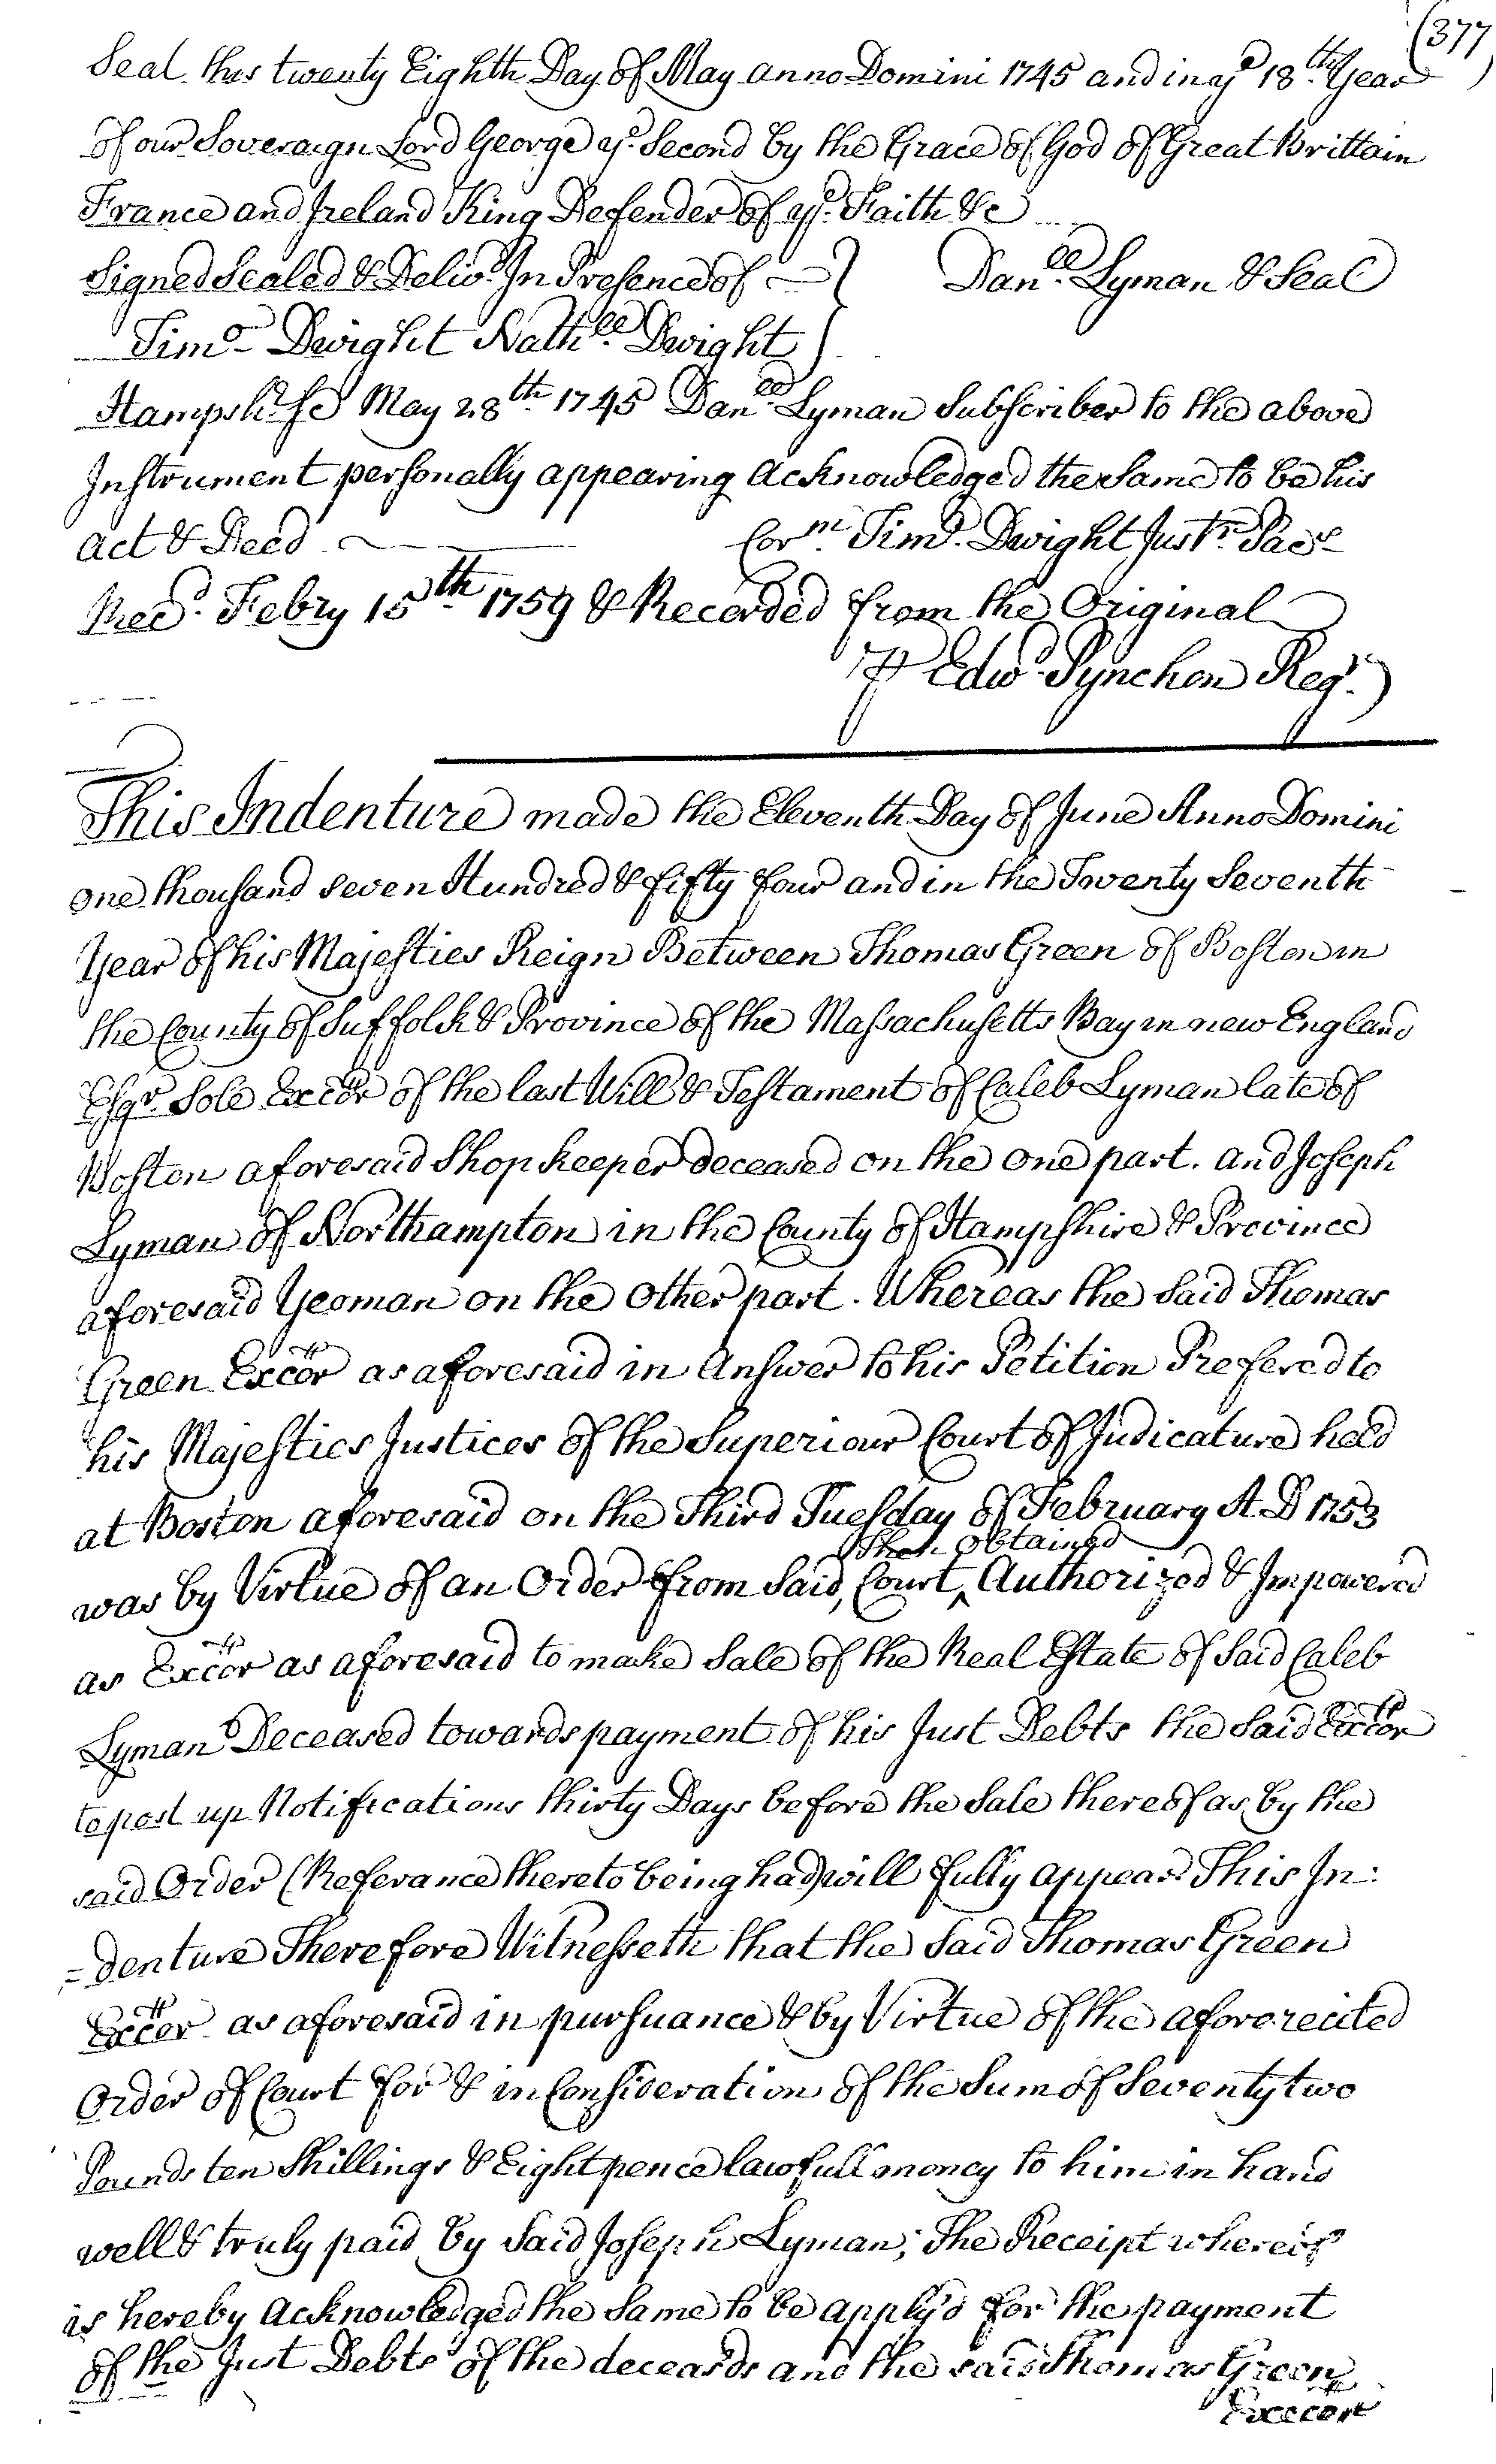 (377)
Seal this twenty Eighth Day of May anno Domini 1745 and in ye 18th Year
Of our Soveraign Lord George ye Second by the Grace of God of Great Brittain
France and Ireland King Defender of ye Faith &c
Signed Sealed & Delivd In Presence of — } Danll Lyman & Seal
Timo Dwight Nathll Dwight
Hampshr Sc May 28th 1745 Danll Lyman Subscriber to the above
Instrument personally appearing Acknowledged the Same to be his
act & Deed Corm Timo Dwight Justs Pacs
Recd Febry 15th 1759 & Recorded from the Original
P Edwd Pynchon Regr
This Indenture made the Eleventh Day of June Anno Domini
one thousand seven Hundred & fifty four and in the Twenty Seventh
Year of his Majesties Reign Between Thomas Green of Boston in
the County of Suffolk & Province of the Massachusetts Bay in new England
Esqr Sole Excor of the last Will & Testament of Caleb Lyman late of
Boston aforesaid Shopkeeper deceased on the one part. and Joseph
Lyman of Northampton in the County of Hampshire & Province
aforesaid Yeoman on the Other part. Whereas the Said Thomas
Green Excor as aforesaid in Answer to his Petition Prefered to
his Majesties Justices of the Superiour Court of Judicature held
at Boston aforesaid on the Third Tuesday of February A.D 1753
was by Virtue of an Order from Said, Court ^ Then Obtained Authorized & Impowered
as Excor as aforesaid to make Sale of the Real Estate of Said Caleb
Lyman Deceased towards payment of his Just Debts the Said Excor
to post up Notifications thirty Days before the Sale thereof as by the
said Order (Referance thereto being had) will fully appear. This In:
=denture Therefore Witnesseth that the Said Thomas Green
Excor as aforesaid in pursuance & by Virtue of the aforerecited
Order of Court for & in Consideration of the Sum of Seventy two
Pounds ten Shillings & Eight pence lawfull money to him in hand
well & truly paid by Said Joseph Lyman; The Receipt whereof
is hereby Acknowledged the Same to be apply'd for the payment
of the Just Debts of the deceas'd and the said Thomas Green
Excecor